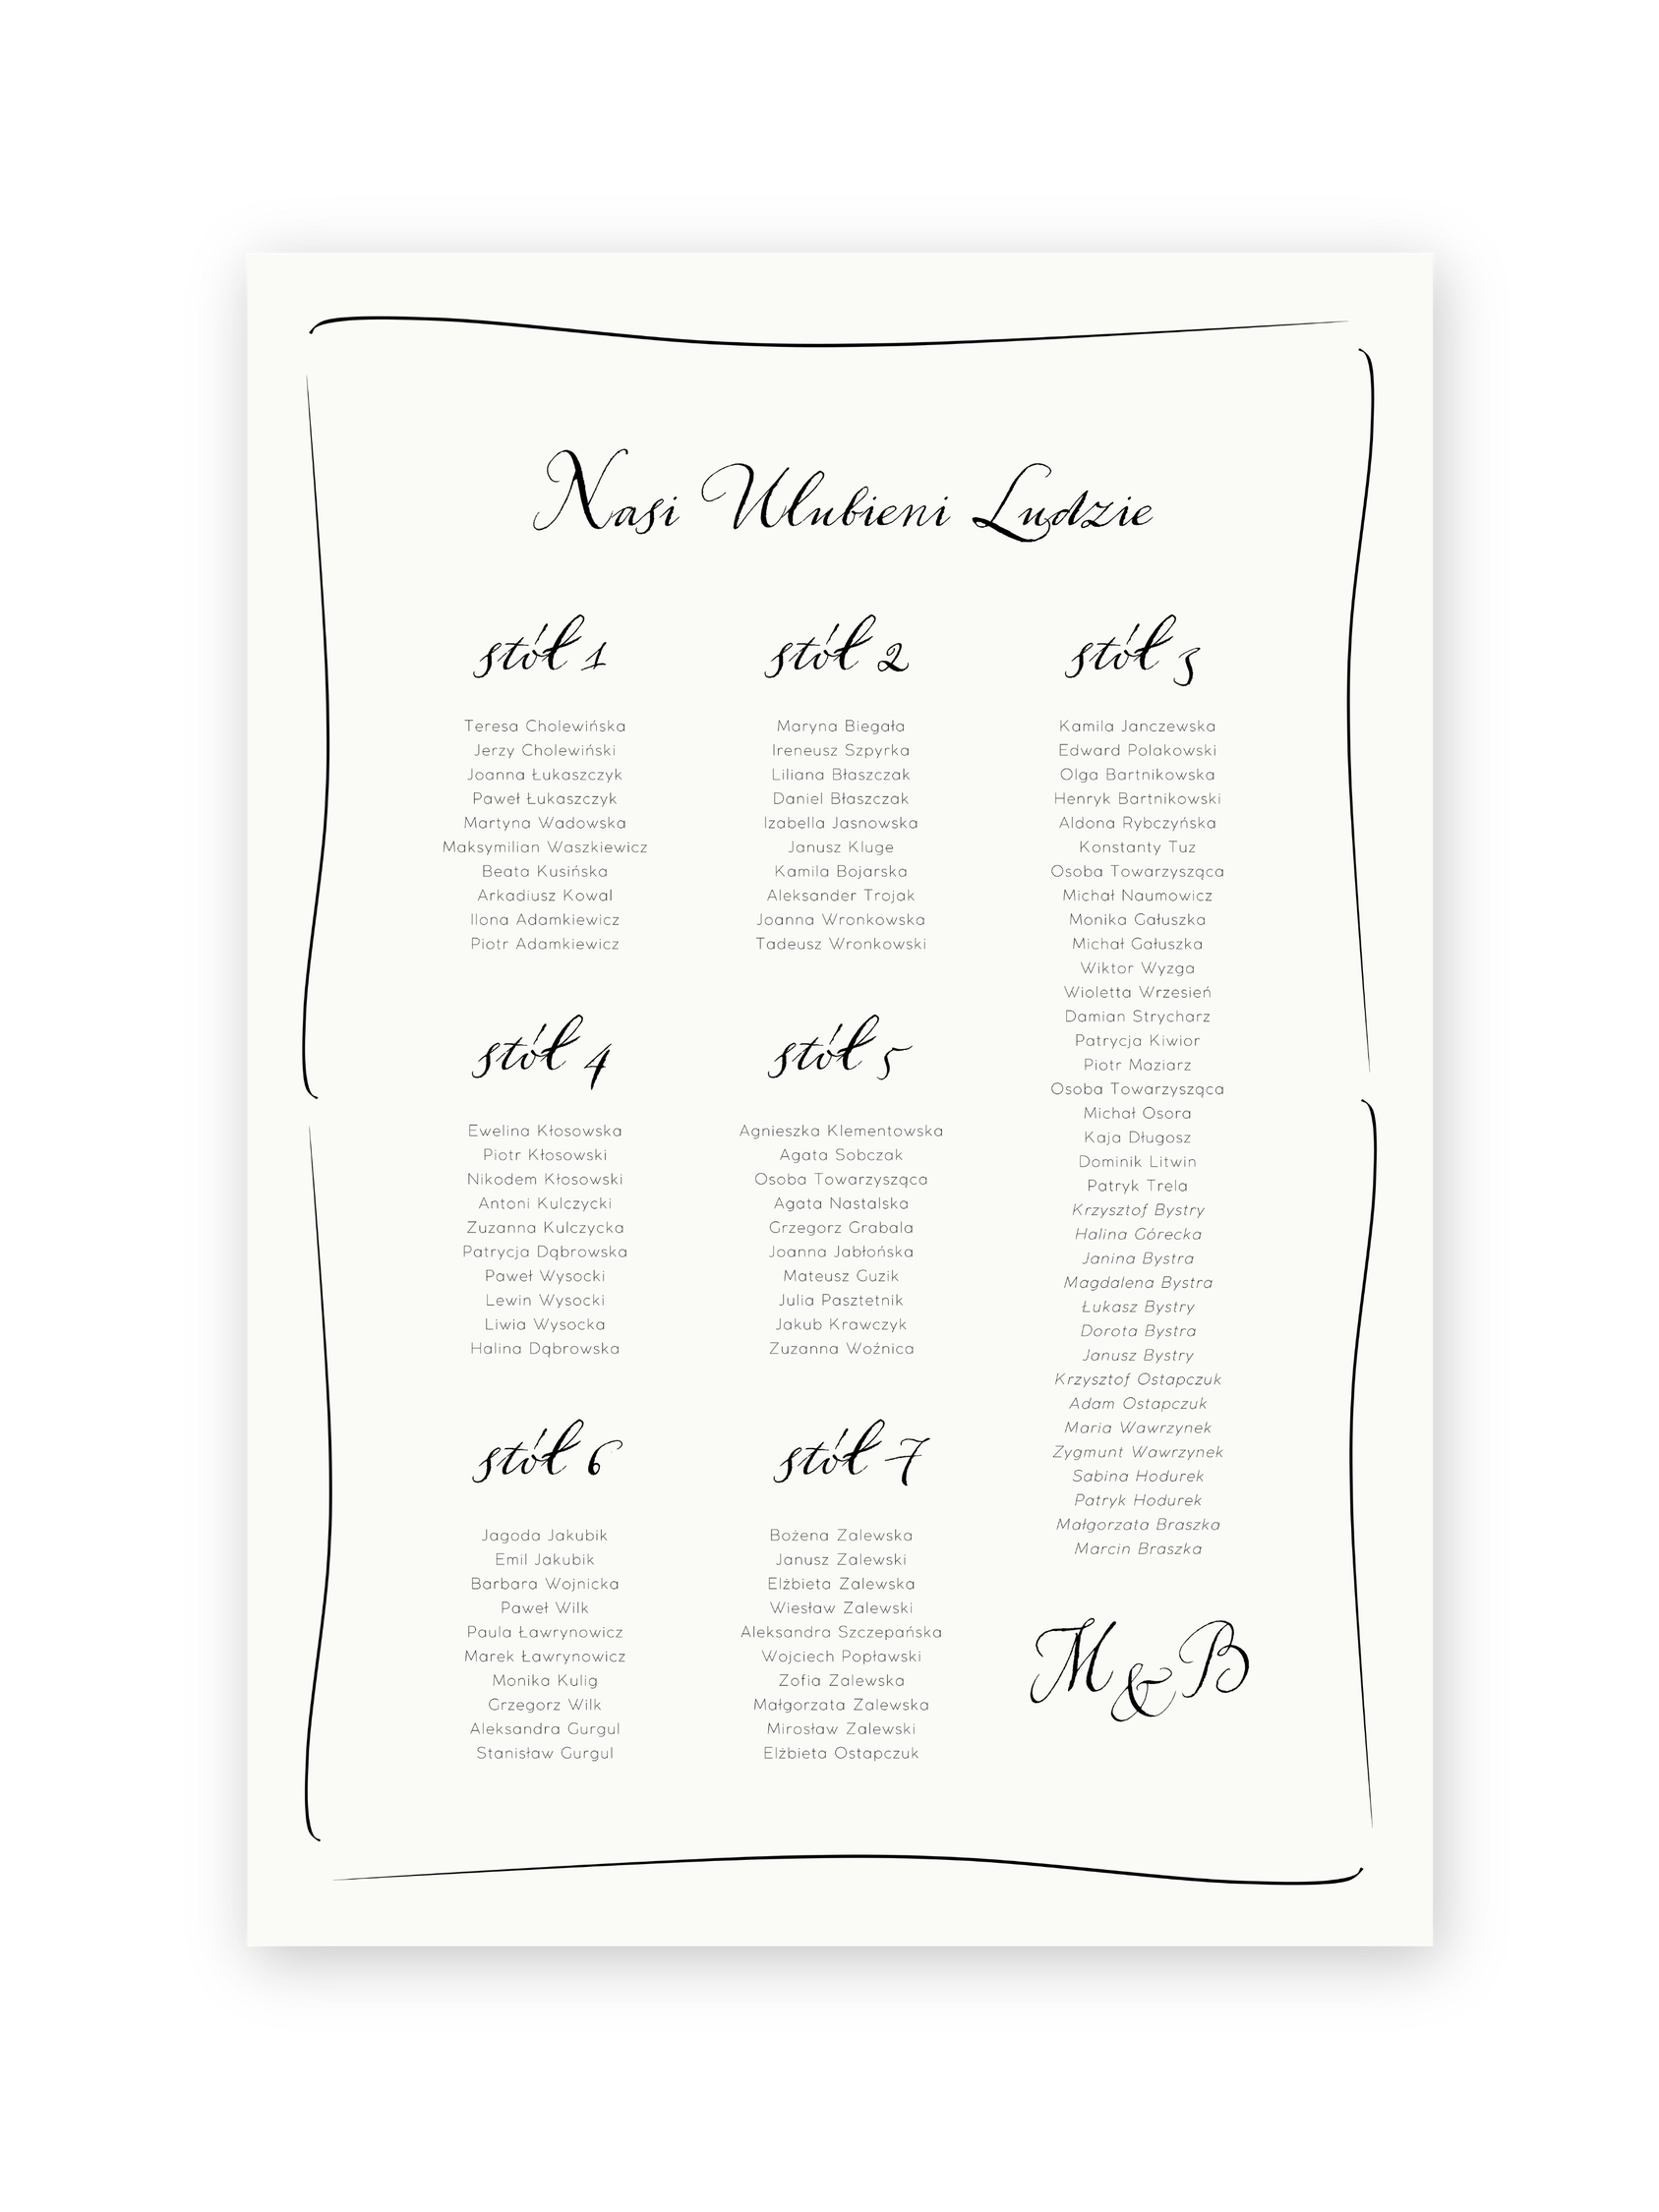 Nasi Ulubieni Ludzie
stół 1
Teresa Cholewińska
Jerzy Cholewiński
Joanna Łukaszczyk
Paweł Łukaszczyk
Martyna Wadowska
Maksymilian Waszkiewicz
Beata Kusińska
Arkadiusz Kowal
Ilona Adamkiewicz
Piotr Adamkiewicz
stół 2
Maryna Biegała
Ireneusz Szpyrka
Liliana Błaszczak
Daniel Błaszczak
Izabella Jasnowska
Janusz Kluge
Kamila Bojarska
Aleksander Trojak
Joanna Wronkowska
Tadeusz Wronkowski
stół 3
Kamila Janczewska
Edward Polakowski
Olga Bartnikowska
Henryk Bartnikowski
Aldona Rybczyńska
Konstanty Tuz
Osoba Towarzysząca
Michał Naumowicz
Monika Gałuszka
Michał Gałuszka
Wiktor Wyzga
Wioletta Wrzesień
Damian Strycharz
Patrycja Kiwior
Piotr Maziarz
Osoba Towarzysząca
Michał Osora
Kaja Długosz
Dominik Litwin
Patryk Trela
Krzysztof Bystry
Halina Górecka
Janina Bystra
Magdalena Bystra
Łukasz Bystry
Dorota Bystra
Janusz Bystry
Krzysztof Ostapczuk
Adam Ostapczuk
Maria Wawrzynek
Zygmunt Wawrzynek
Sabina Hodurek
Patryk Hodurek
Małgorzata Braszka
Marcin Braszka
stół 4
Ewelina Kłosowska
Piotr Kłosowski
Nikodem Kłosowski
Antoni Kulczycki
Zuzanna Kulczycka
Patrycja Dąbrowska
Paweł Wysocki
Lewin Wysocki
Liwia Wysocka
Halina Dąbrowska
stół 5
Agnieszka Klementowska
Agata Sobczak
Osoba Towarzysząca
Agata Nastalska
Grzegorz Grabala
Joanna Jabłońska
Mateusz Guzik
Julia Pasztetnik
Jakub Krawczyk
Zuzanna Woźnica
stół 6
Jagoda Jakubik
Emil Jakubik
Barbara Wojnicka
Paweł Wilk
Paula Ławrynowicz
Marek Ławrynowicz
Monika Kulig
Grzegorz Wilk
Aleksandra Gurgul
Stanisław Gurgul
stół 7
Bożena Zalewska
Janusz Zalewski
Elżbieta Zalewska
Wiesław Zalewski
Aleksandra Szczepańska
Wojciech Popławski
Zofia Zalewska
Małgorzata Zalewska
Mirosław Zalewski
Elżbieta Ostapczuk
M & B